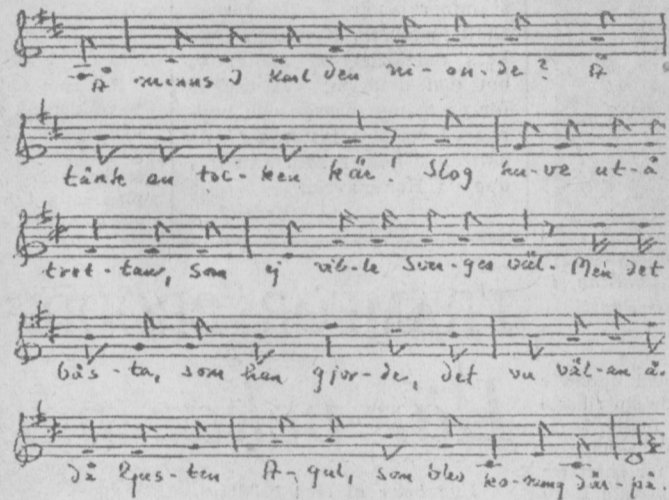 Å minns I Karl den ni-on-de? Å
tänk en toc-ken kär! Slog hu-ve ut-å
tret-tan, som ej vil-le Sve-ges väl. Men det
bäs-ta, som han gjor-de, det va väl-an å.
då Gus-ten A-gul, som blev ko-nung där-på.